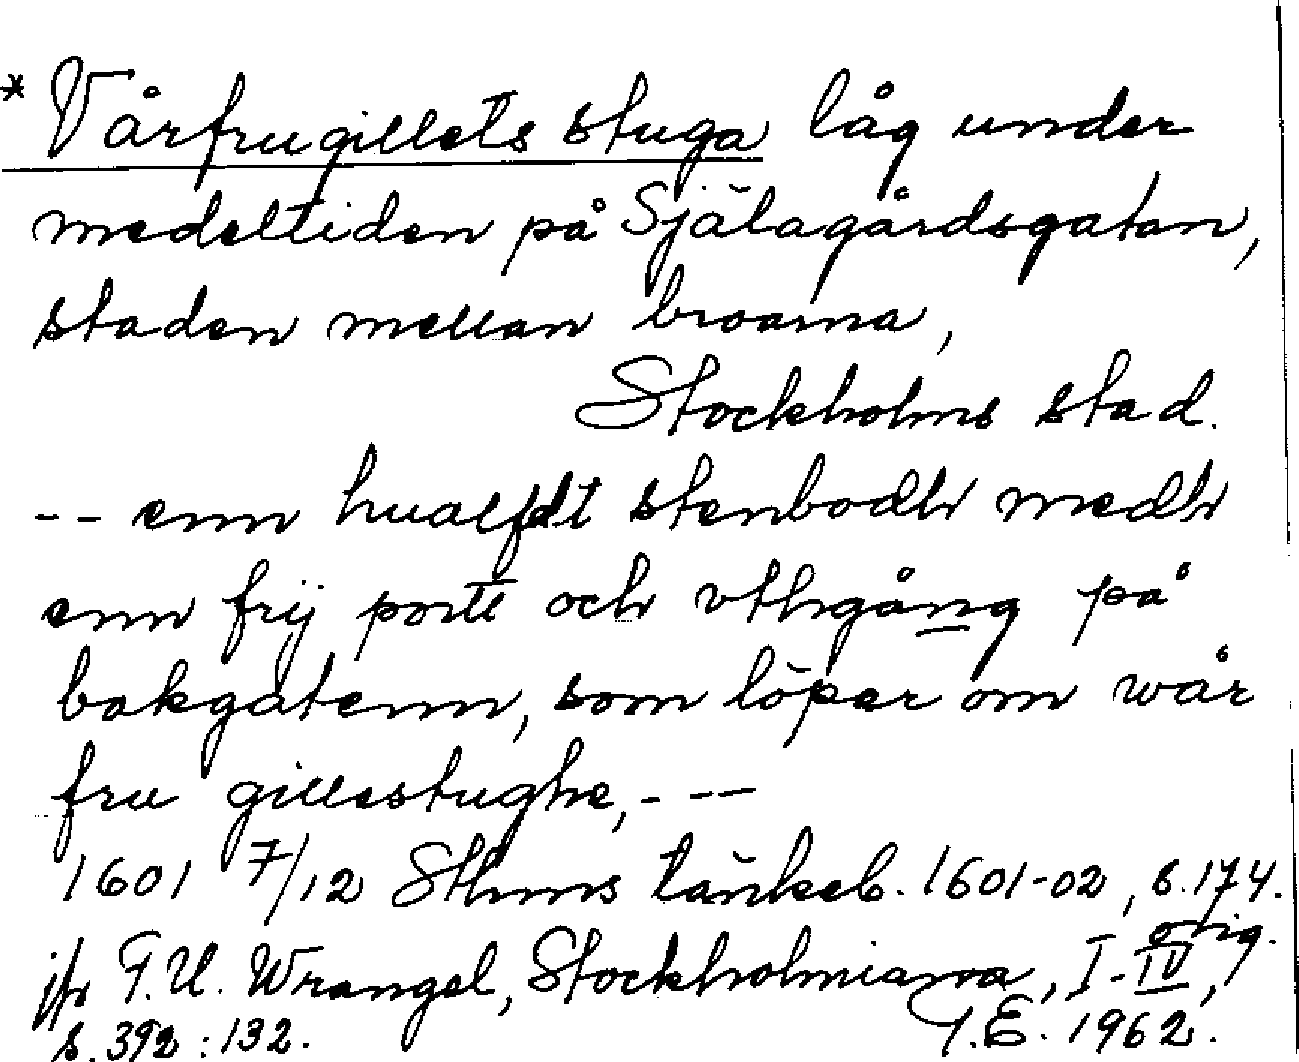 * Vårfrugillets stuga låg under
medeltiden på Själagårdsgatan,
staden mellan broarna,
Stockholms stad.
-- enn hualfdt stenbodh medh
enn frij portt och vthgång på
bakgatenn, som löper om wår
fru gillestughe, - --
1601 7/12 Sthms tänkeb. 1601-02, s. 174.
orig.
jfr F.U. Wrangel, Stockholmiana, I-IV,
s. 392 : 132. Y.E. 1962.